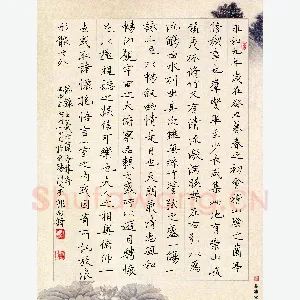 永和九年歲在癸丑暮春之初會于會稽山陰之蘭亭
修禊事也群賢畢至少長咸集此地有崇山峻
領茂林修竹又有清流激湍映帶左右引以為
流觴曲水列坐其次雖無絲竹管弦之盛一觴一
詠亦足以暢敘幽情是日也天朗氣清惠風和
暢仰觀宇宙之大俯察品類之盛所以遊目騁懷
足以極視聽之娛信可樂也夫人之相與俯仰一
世或取諸懷抱悟言一室之內或因寄所託放浪
形骸之外